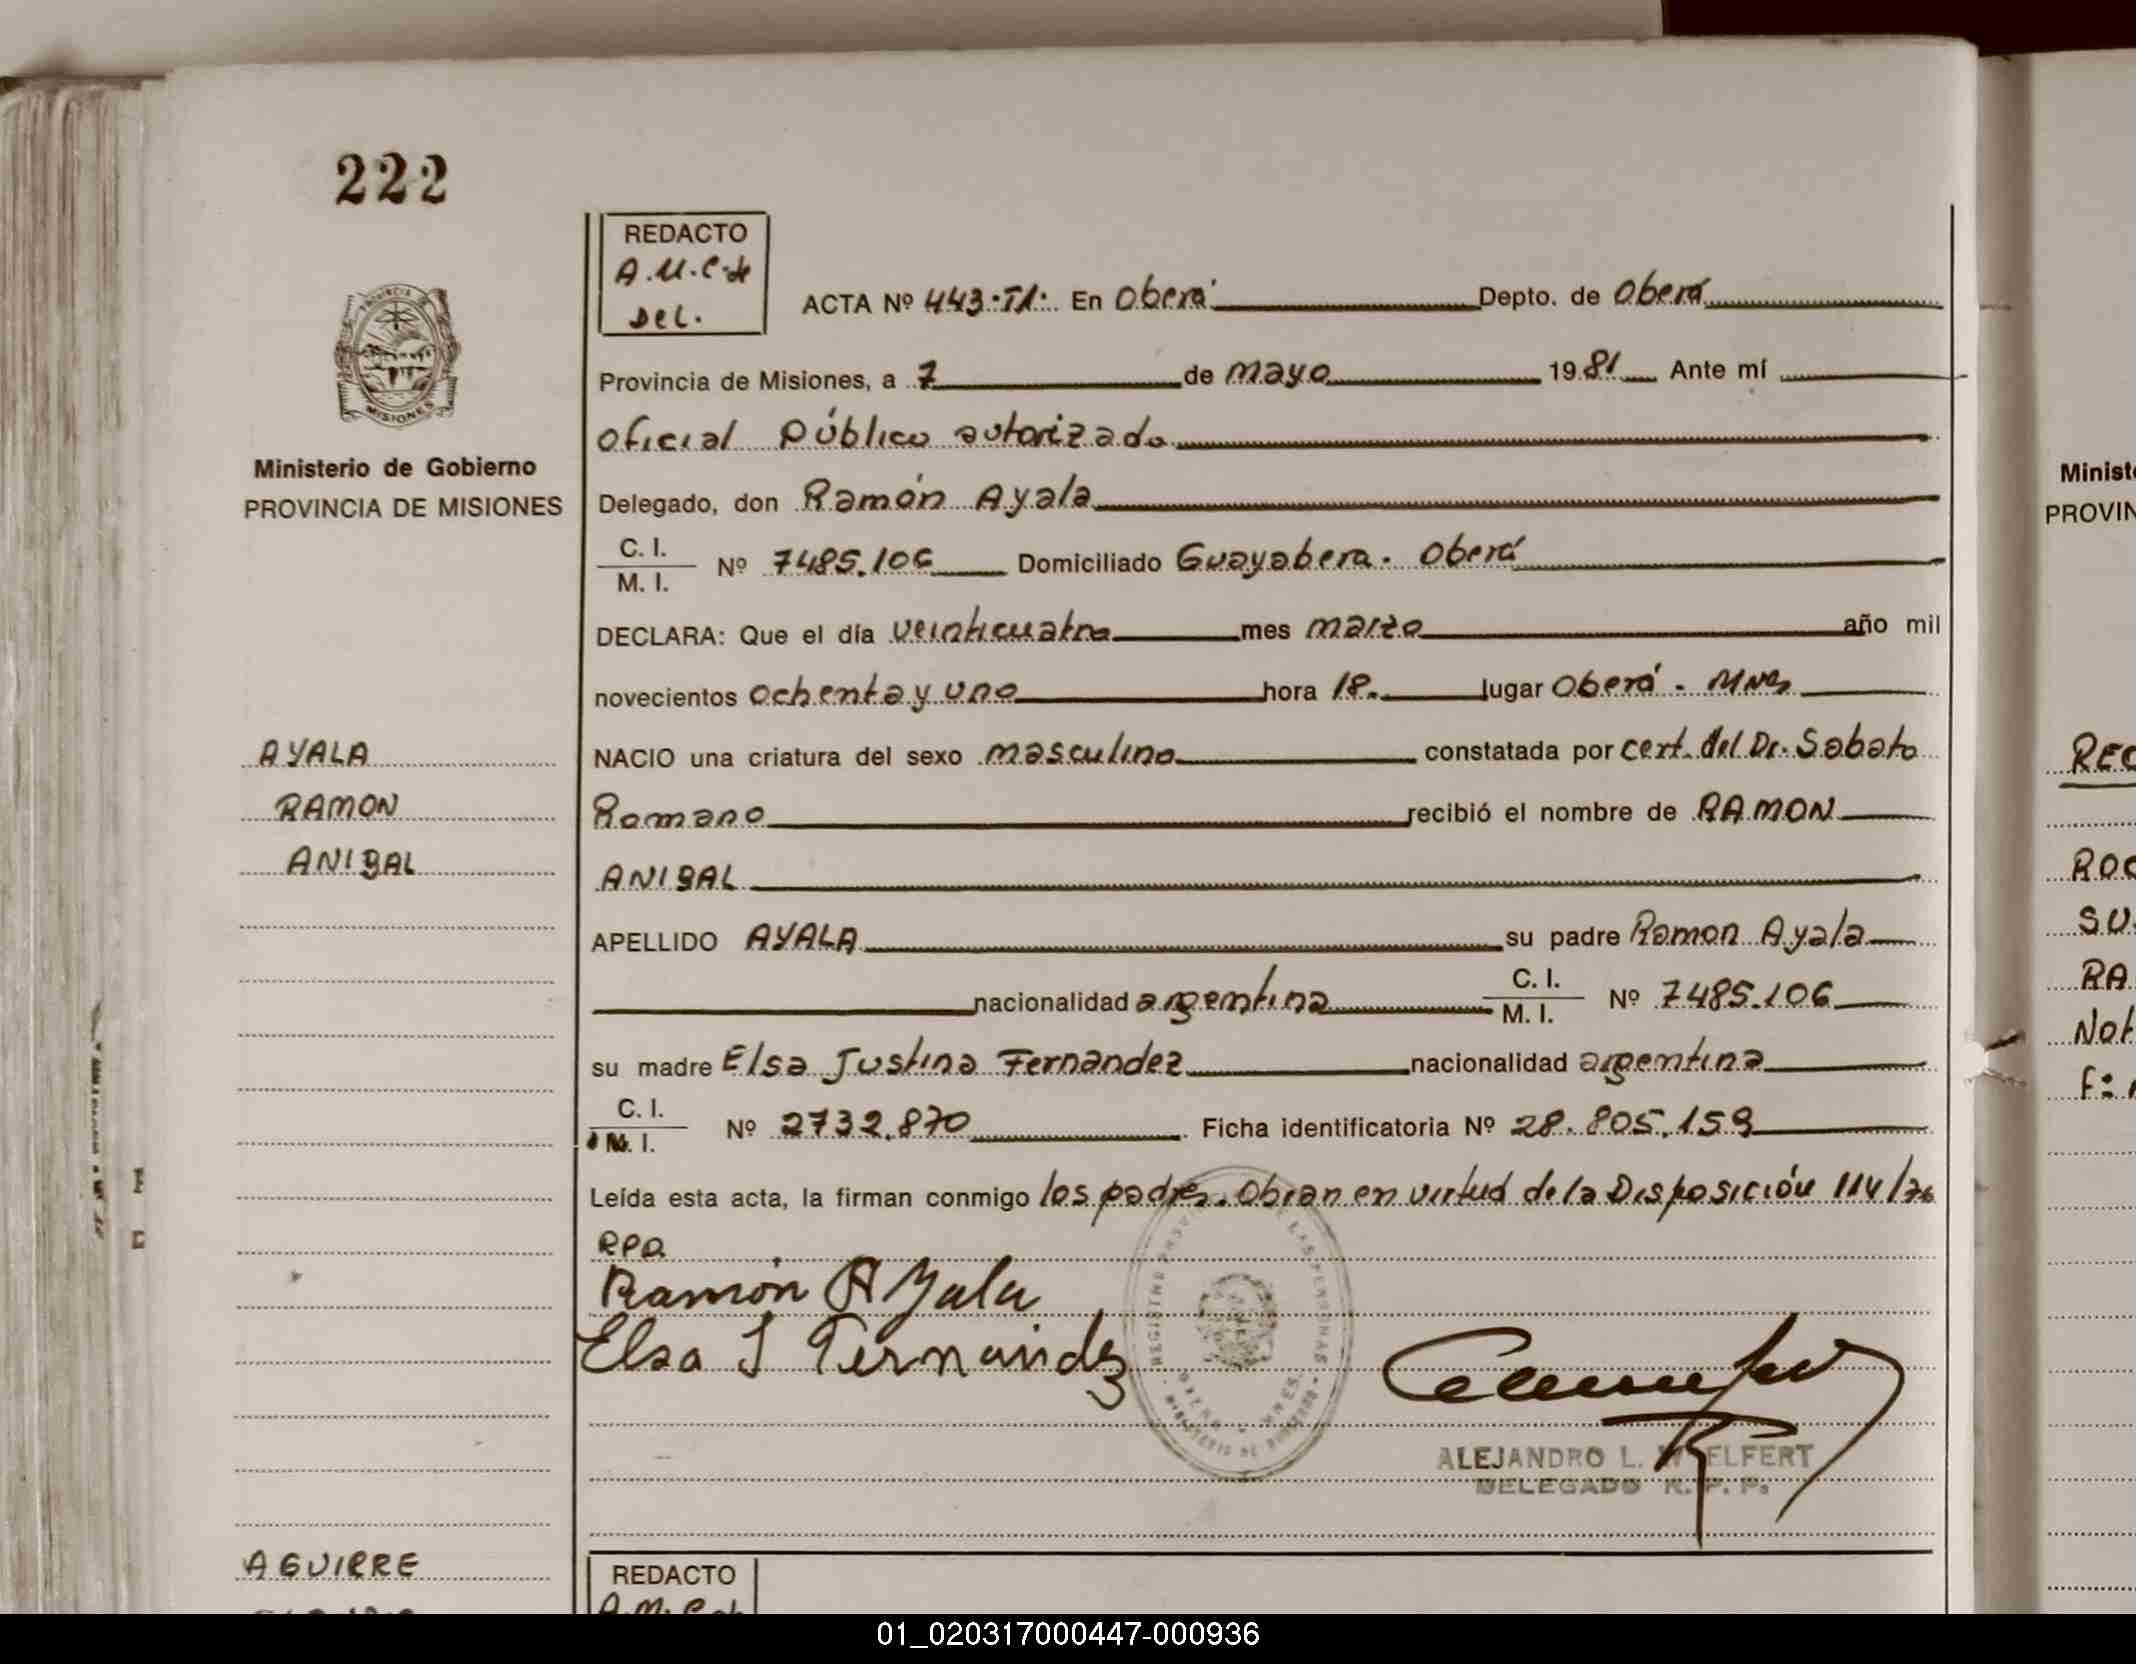 222
PROVINCIA DE
MISIONES
Ministerio de Gobierno
PROVINCIA DE MISIONES
AYALA
RAMON
ANIBAL
AGUIRRE
REDACTO
A.M.C. de
DEL.
ACTA Nº 443.TI. En Oberá Depto. de Oberá
Provincia de Misiones, a 7 de mayo 1981 Ante mí
Oficial Público autorizado
Delegado, don Ramón Ayala
C. I.
M. I. Nº 7485.106 Domiciliado Guayabera. Oberá
DECLARA: Que el día veinticuatro mes marzo año mil
novecientos ochenta y uno hora 18. lugar Oberá - Mnes
NACIO una criatura del sexo masculino constatada por cert. del Dr. Sabato
Romano recibió el nombre de RAMON
ANIBAL
APELLIDO AYALA su padre Ramon Ayala
nacionalidad argentina C. I.
M. I. Nº 7485.106
su madre Elsa Justina Fernandez nacionalidad argentina
C. I.
M. I. Nº 2732.870 Ficha identificatoria Nº 28.805.159
Leída esta acta, la firman conmigo los padres. Obran en virtud de la Disposición 114/76
RPP
Ramón Ayala
Elsa J Fernández
ALEJANDRO L. WELFERT
DELEGADO R. P. P.
REDACTO
A.M.C. de
Ministe
PROVIN
REC
ROD
SU
RA
Not
F:
01_020317000447-000936